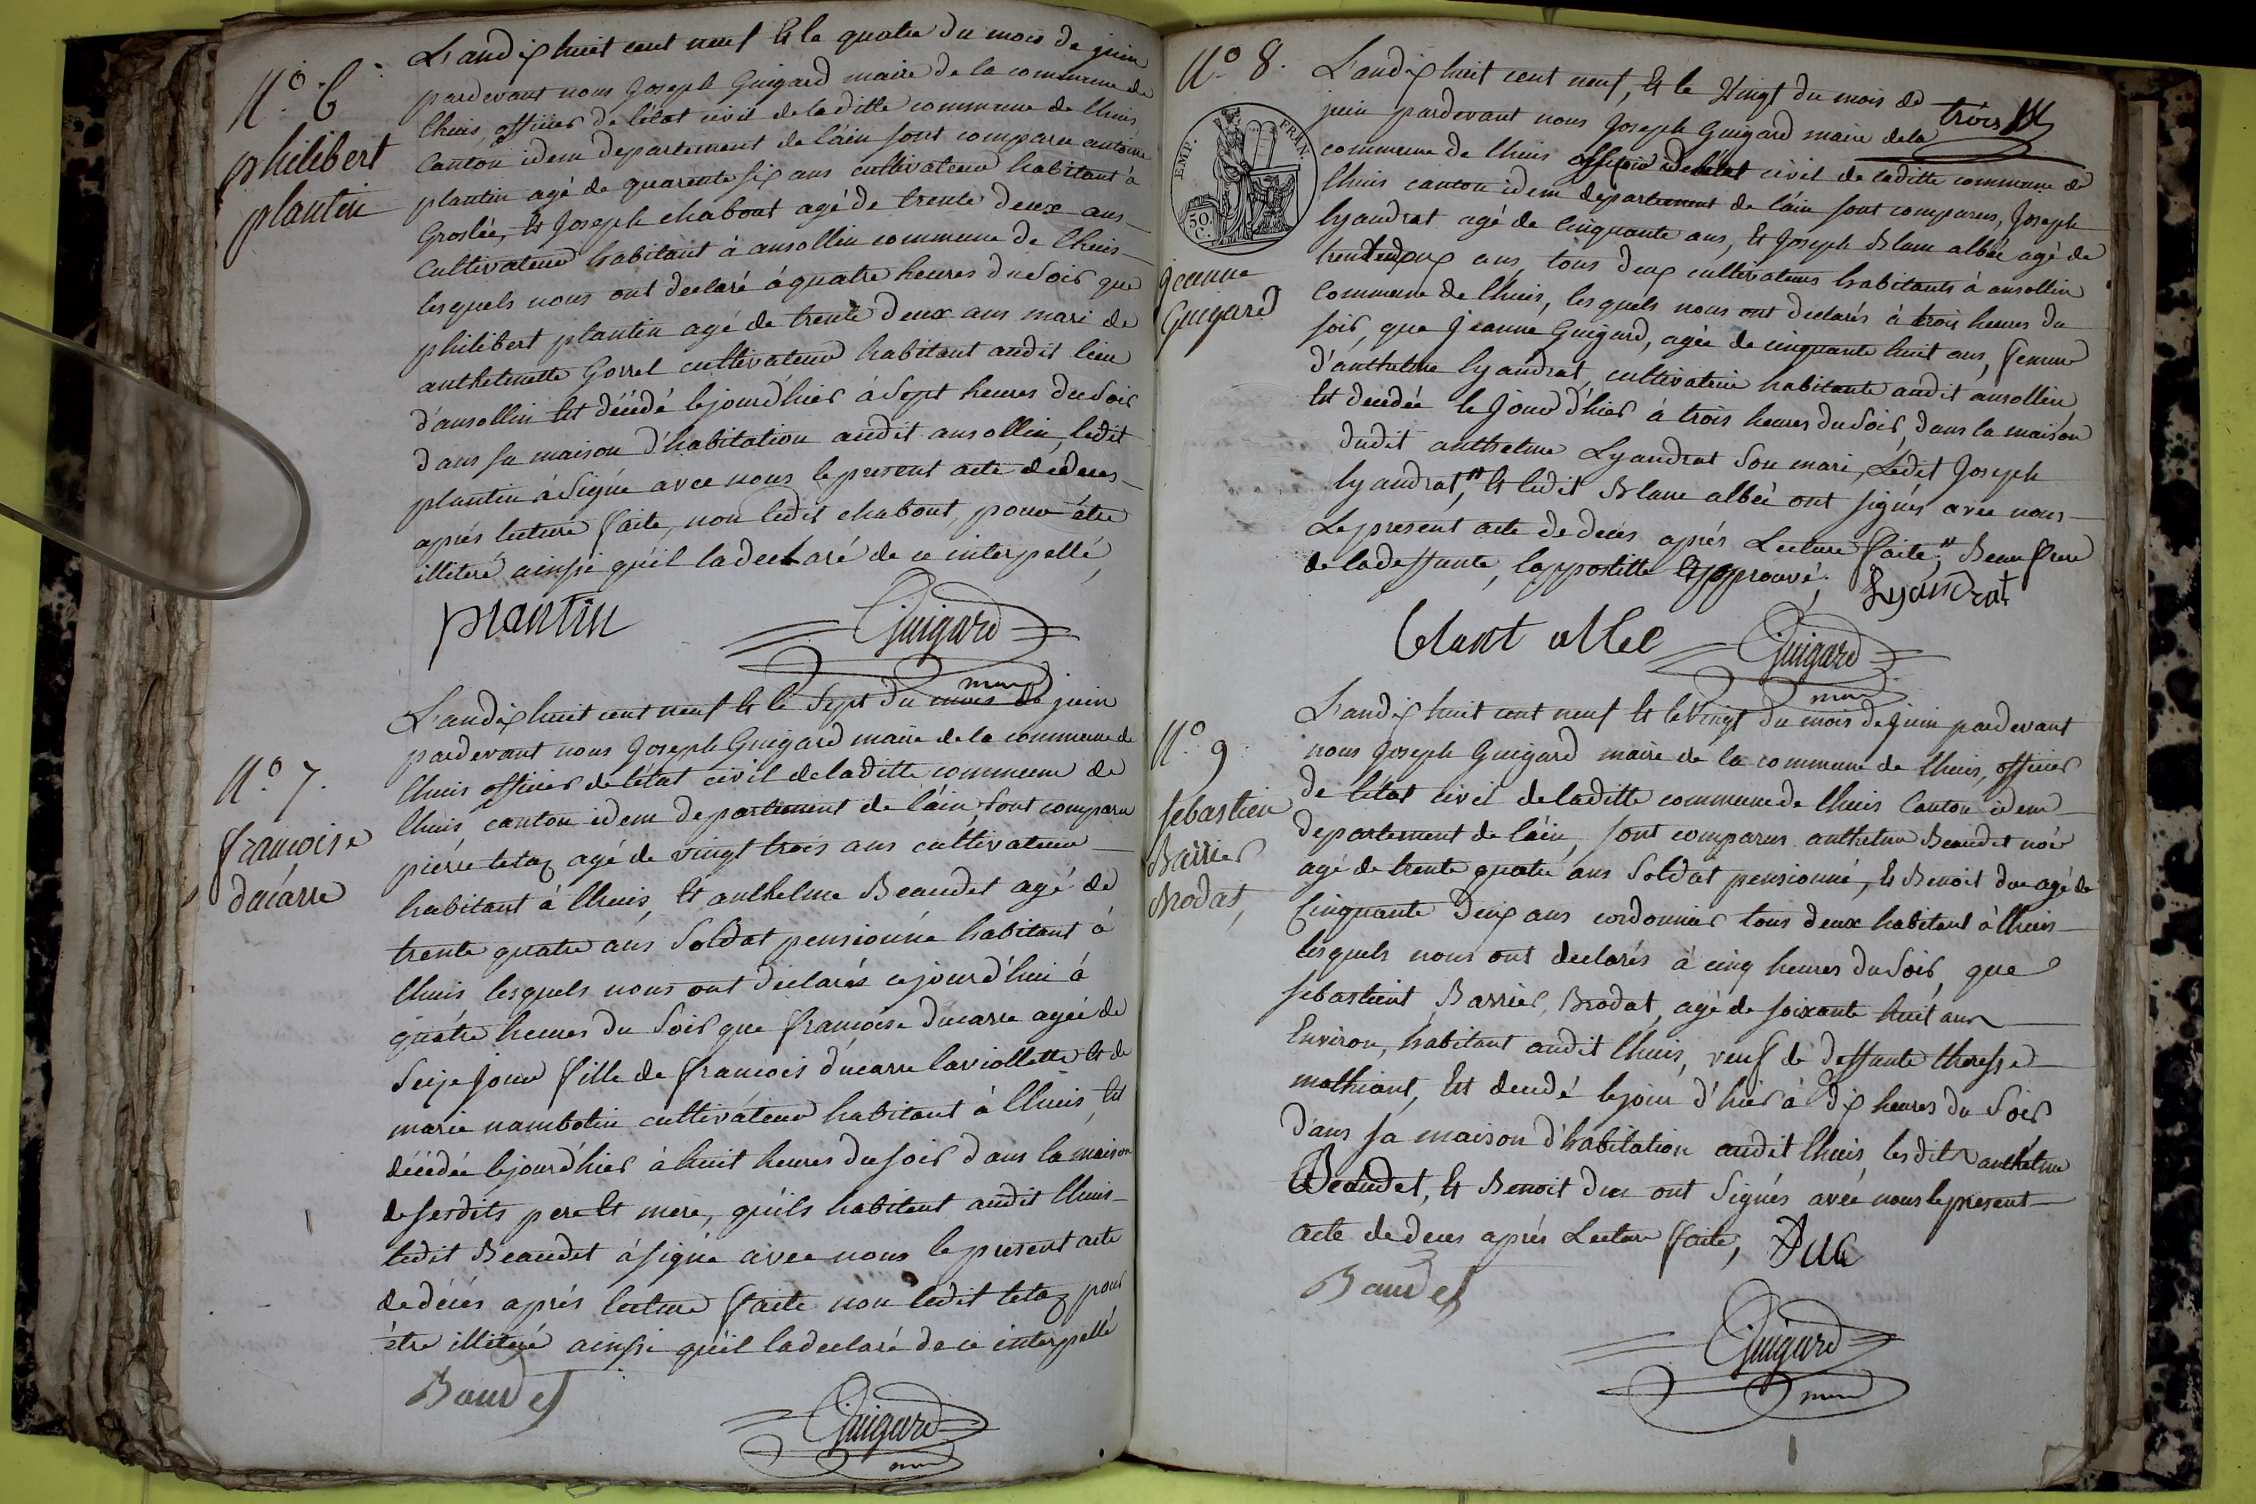 N.° 6
philibert
plantin
L'an dix huit cent neuf Et le quatre du mois de juin
pardevant nous Joseph Guigard maire de la commune de
lhuis, officier de l'état civil de laditte commune de lhuis
Canton idem departement de l'ain sont comparu antoine
plantin agé de quarente six ans cultivateur habitant à
Groslée, Et Joseph chabout agé de trente deux ans
Cultivateur habitant à ansollin commune de lhuis
lesquels nous ont declaré à quatre heures du Soir que
philibert plantin agé de trente deux ans mari de
anthelmette Gorrel cultivateur habitant audit lieu
d'ansollin Est décédé le jourd'hier à Sept heures du Soir
dans sa maison d'habitation audit ansollin, ledit
plantin à Signé avec nous le present acte de deces
aprés lecture faite, non ledit chabout, pour être
illiteré ainssi qu'il la declaré de ce interpellé,
plantin
Guigard
maire
N.° 7.
francoise
ducarre
L'an dix huit cent neuf Et le Sept du mois de juin
pardevant nous Joseph Guigard maire de la commune de
lhuis officier de l'état civil de laditte commune de
lhuis canton idem departement de l'ain, Sont comparu
pierre tetaz agé de vingt trois ans cultivateur
habitant à lhuis, Et anthelme Beaudet agé de
trente quatre ans Soldat pensionné habitant à
lhuis, lesquels nous ont declarés cejourd'hui à
quatre heures du Soir que francoise ducarre ageé de
Seize jour fille de francois ducarre laviollette Et de
marie nambotin cultivateur habitant à lhuis, Est
décédée le jourd'hier à huit heures du soir dans la maison
de sesdits pere Et mere, qu'ils habitent audit lhuis
ledit Beaudet à signé avec nous le present acte
de décés aprés lecture faite non ledit tetaz pour
être illiteré ainssi qu'il la declaré de ce interpellé
Baudet
Guigard
maire
N.° 8.
trois
Jeanne
Guigard
EMP. FRAN.
50. C.
L'an dix huit cent neuf, Et le Vingt du mois de
juin pardevant nous Joseph Guigard maire de la
commune de lhuis officier de l'état civil de laditte commune de
lhuis canton idem departement de l'ain sont comparus, Joseph
lyandrat agé de Cinquante ans, Et Joseph Blanc albée agé de
trentedeux ans, tous deux cultivateurs habitants à ansollin
Commune de lhuis, lesquels nous ont declarés à trois heures du
soir, que Jeanne Guigard, agée de cinquante huit ans, femme
d'anthelme lyandrat, cultivatrice habitante audit ansollin,
Est decedée le Jour d'hier à trois heures du Soir, dans la maison
dudit anthelme Lyandrat Son mari, Ledit Joseph
lyandrat, Et ledit Blanc albée ont signés avec nous
Le present acte de decés aprés Lecture faite, Beau frere
de la deffunte, lappostille Est approuvé;
Lyandrat
blant albee
Guigard
maire
N.° 9
sebastien
Barrier
Brodat,
L'an dix huit cent neuf Et le Vingt du mois de juin pardevant
nous Joseph Guigard maire de la commune de lhuis, officier
de l'état civil de laditte commune de lhuis Canton idem
departement de l'ain, sont comparus anthelme Beaudet noir
agé de trente quatre ans Soldat pensionné, Et Benoit duc agé de
Cinquante Deux ans cordonnier tous deux habitant à lhuis
lesquels nous ont declarés à cinq heures du Soir, que
sebastient Barrier, Brodat, agé de soixante huit ans
Environ, habitant audit lhuis, veuf de deffunte theresse
mathiant, Est decedé le jour d'hier à dix heures du Soir
dans sa maison d'habitation audit lhuis, lesdits anthelme
Beaudet, Et Benoit duc ont Signés avec nous le present
acte de deces aprés Lecture faite,
Duc
Baudet
Guigard
maire